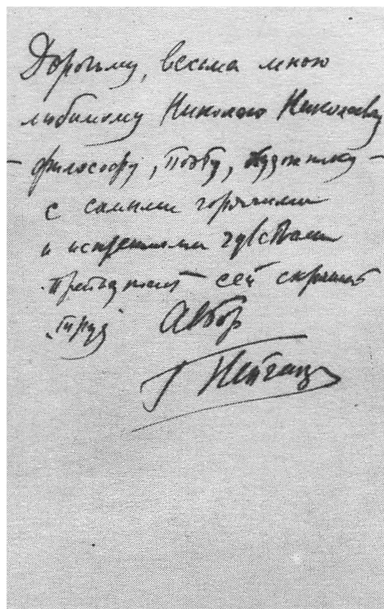 Дорогому, весьма мною
любимому Николаю Николаевичу
– философу, поэту, художнику –
с самыми горячими
и искренними чувствами
преподносит сей скромный
труд Автор
Г Нейгауз